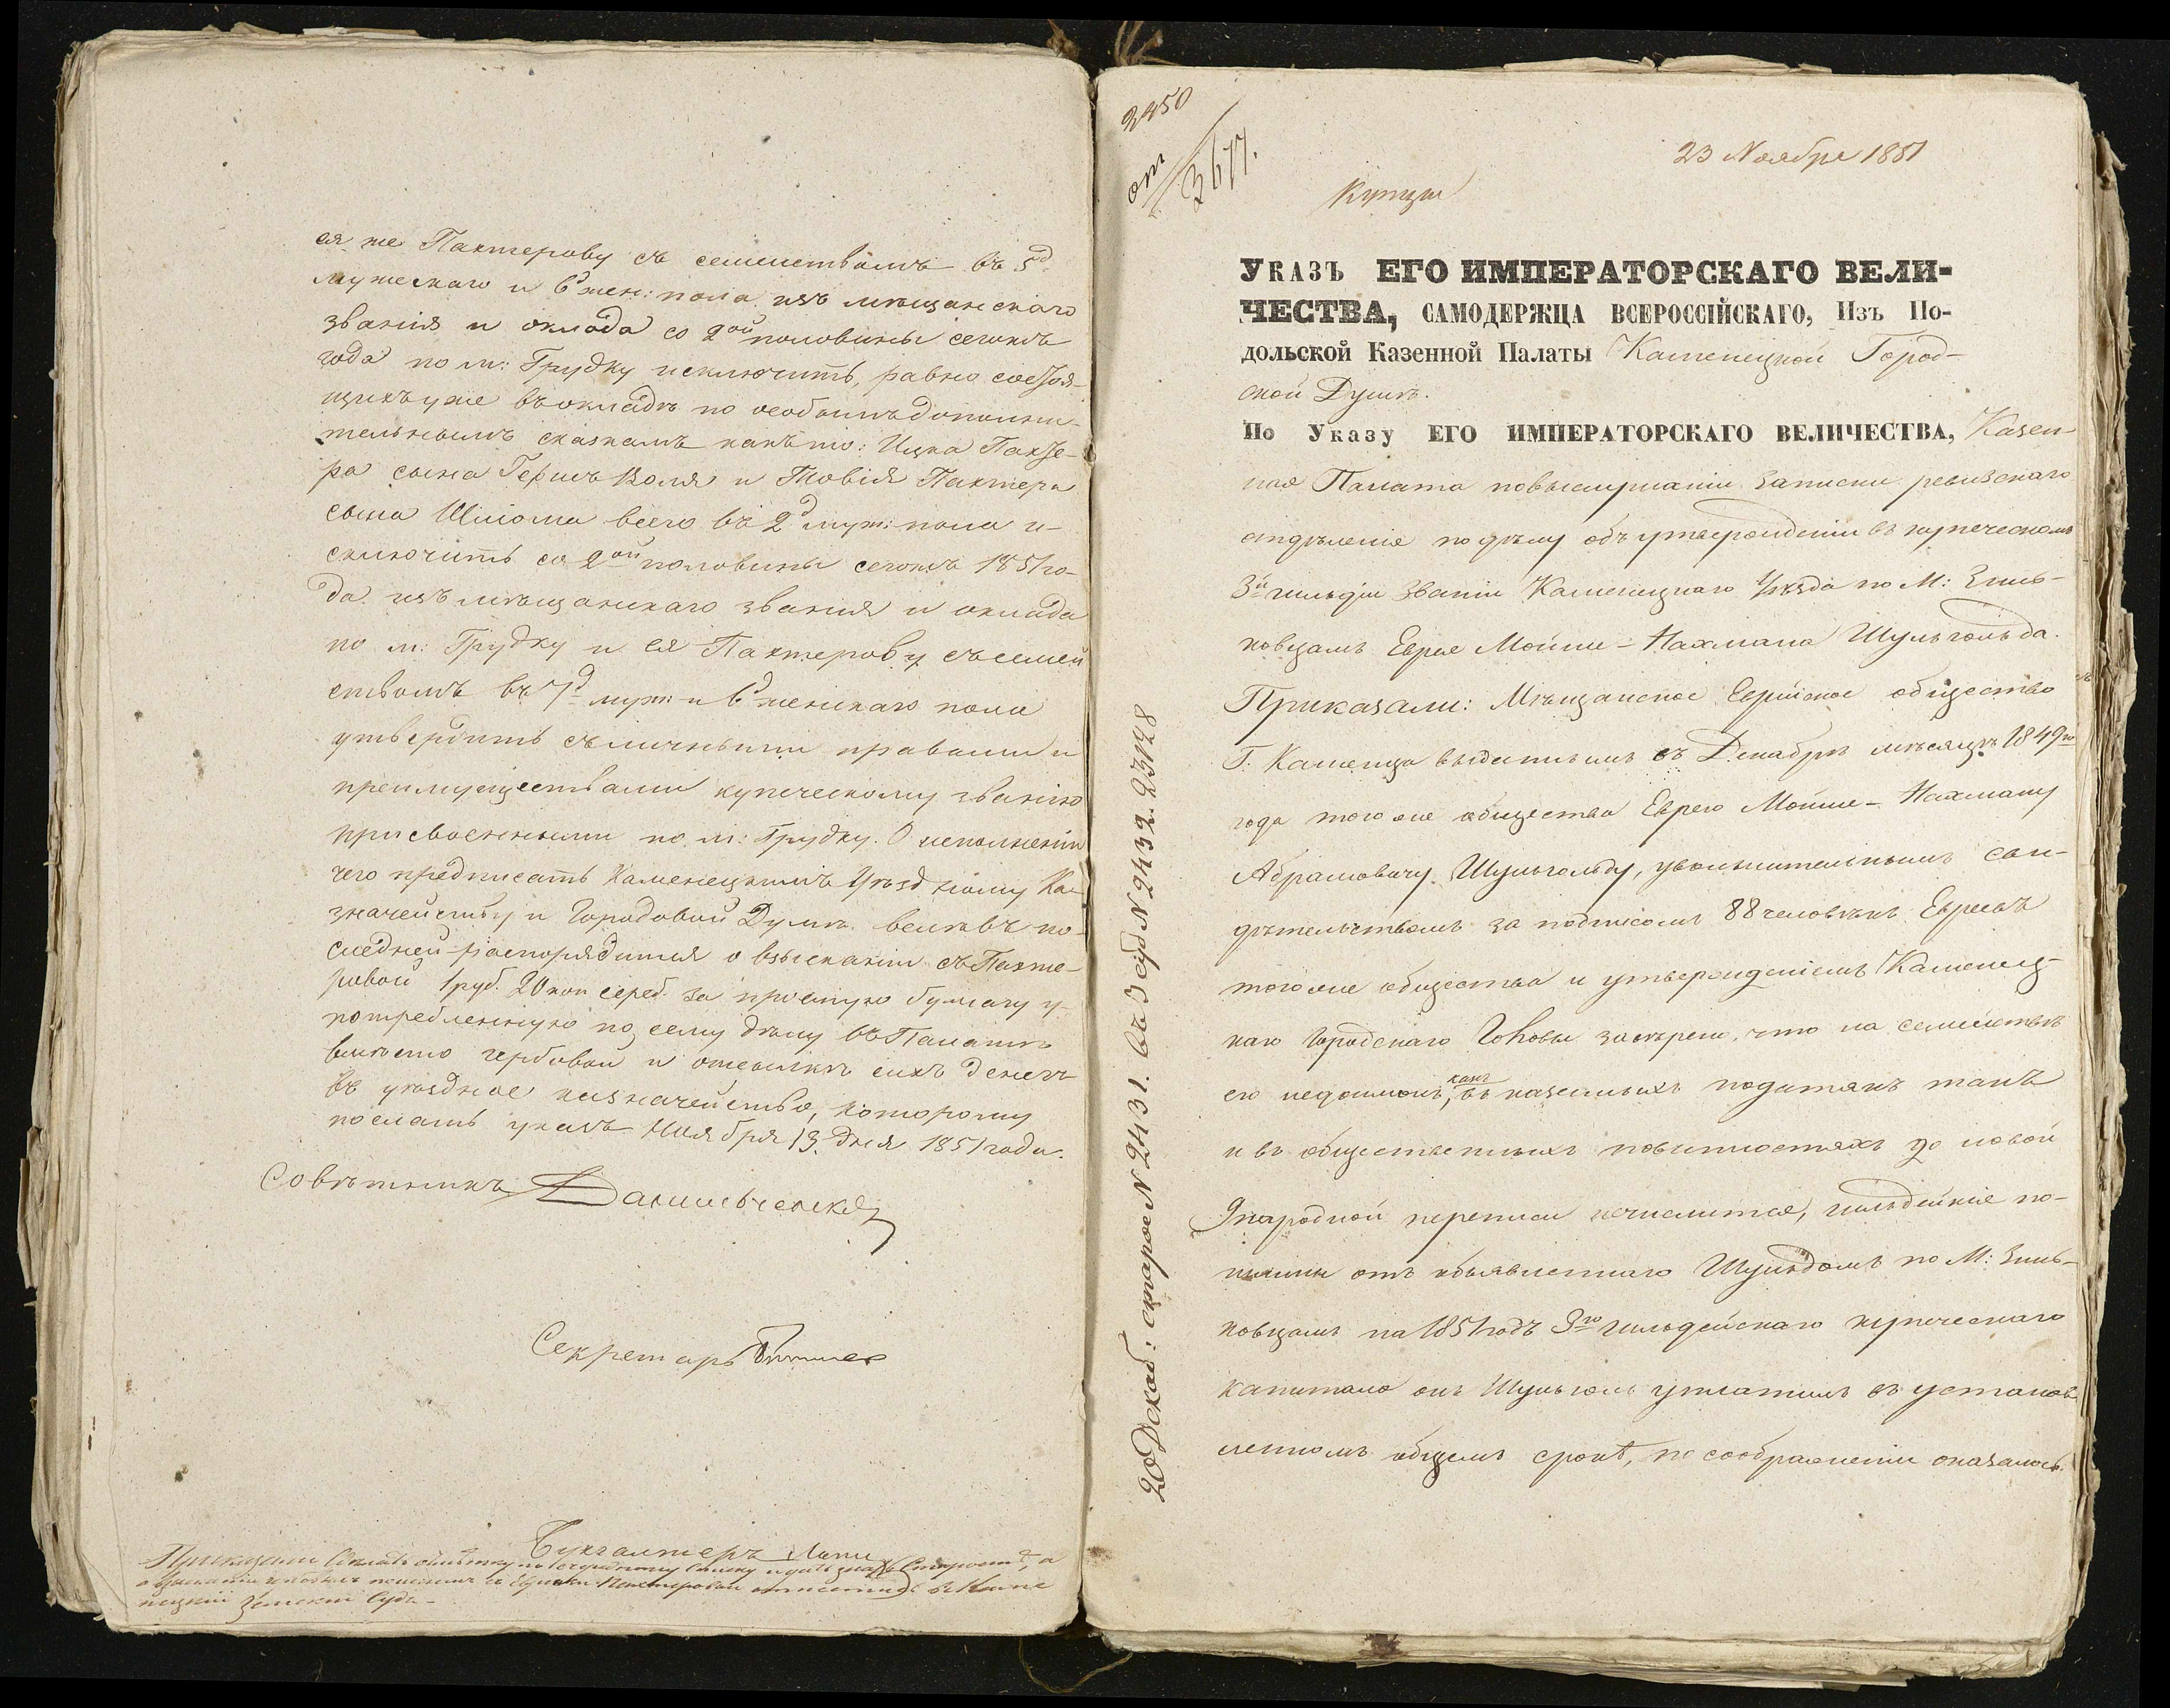 ея же Пактерову съ семействомъ въ 5д.
мужескаго и 6д жен: пола изъ мѣщанскаго
званія и оклада со 2ой половины сегожъ
года по м: Грудку исключить, равно состоя-
щихъ уже въ окладѣ по особымъ дополни-
тельнымъ сказкамъ какъ то: Ицка Пакте-
ра сына Гершъ Воля и Товія Пактера
сына Шліома всего въ 2д муж: пола и-
сключить со 2ой половины сегожъ 1851 го-
да изъ мѣщанскаго званія и оклада
по м: Грудку и ея Пактерову съ семей
ствомъ въ 7д муж: и 6д женскаго пола
утвердить съ личными правами и
преимуществами купеческому званію
присвоенными по м: Грудку. О исполненіи
чего предписать Каменецкимъ Уѣздному Ка-
значейству и Городовой Думѣ велѣвъ по-
слѣдней распорядится о взысканіи съ Пакте-
ровой 1 руб. 20 коп сереб. за простую бумагу у-
потребленную по сему дѣлу въ Палатѣ
вмѣсто гербовой и отсылкѣ сихъ денегъ
въ уѣздное казначейство, которому
посланъ указъ. Ноября 13 дня 1851 года.
Совѣтникъ Данильченко
Секретарь
Бухгалтеръ
Приказали
нецкий Земский Судъ
2450
от
3677.
23 Ноября 1851
Купцы
20 Декаб: старое N 2431. въ 3 стб N 2432. 23/28
УКАЗЪ ЕГО ИМПЕРАТОРСКАГО ВЕЛИ-
ЧЕСТВА, САМОДЕРЖЦА ВСЕРОССІЙСКАГО, Изъ По-
дольской Казенной Палаты Каменецкой Город-
ской Думѣ.
По Указу ЕГО ИМПЕРАТОРСКАГО ВЕЛИЧЕСТВА, Казен-
ная Палата по выслушаніи Записки ревизскаго
отдѣленія по дѣлу объ утвержденіи въ купеческомъ
3й гильдіи званіи Каменецкаго Уѣзда по М: Зинь-
ковцамъ Еврея Мойше-Нахмана Шульгольда.
Приказали: Мѣщанское Еврейское общество
Г. Каменца выданнымъ въ Декабрѣ мѣсяцѣ 1849го
года того же общества Еврею Мойше-Нахману
Абрамовичу Шульгольду, увольнительнымъ сви-
дѣтельствомъ за подписомъ 88 человѣкъ Евреевъ
того же общества и утвержденіемъ Каменец-
каго Городскаго Головы завѣрено, что на семействѣ
его недоимокъ, какъ въ казенныхъ податяхъ такъ
и въ общественныхъ повинностяхъ до новой
9 народной переписи нечислится, гильдейскіе по-
шлины отъ объявленнаго Шульгольдомъ по М: Зинь-
ковцамъ на 1851 годъ 3го гильдейскаго купеческаго
капитала онъ Шульголь уплатилъ въ установ
ленномъ общемъ срокѣ, по соображеніи оказалось